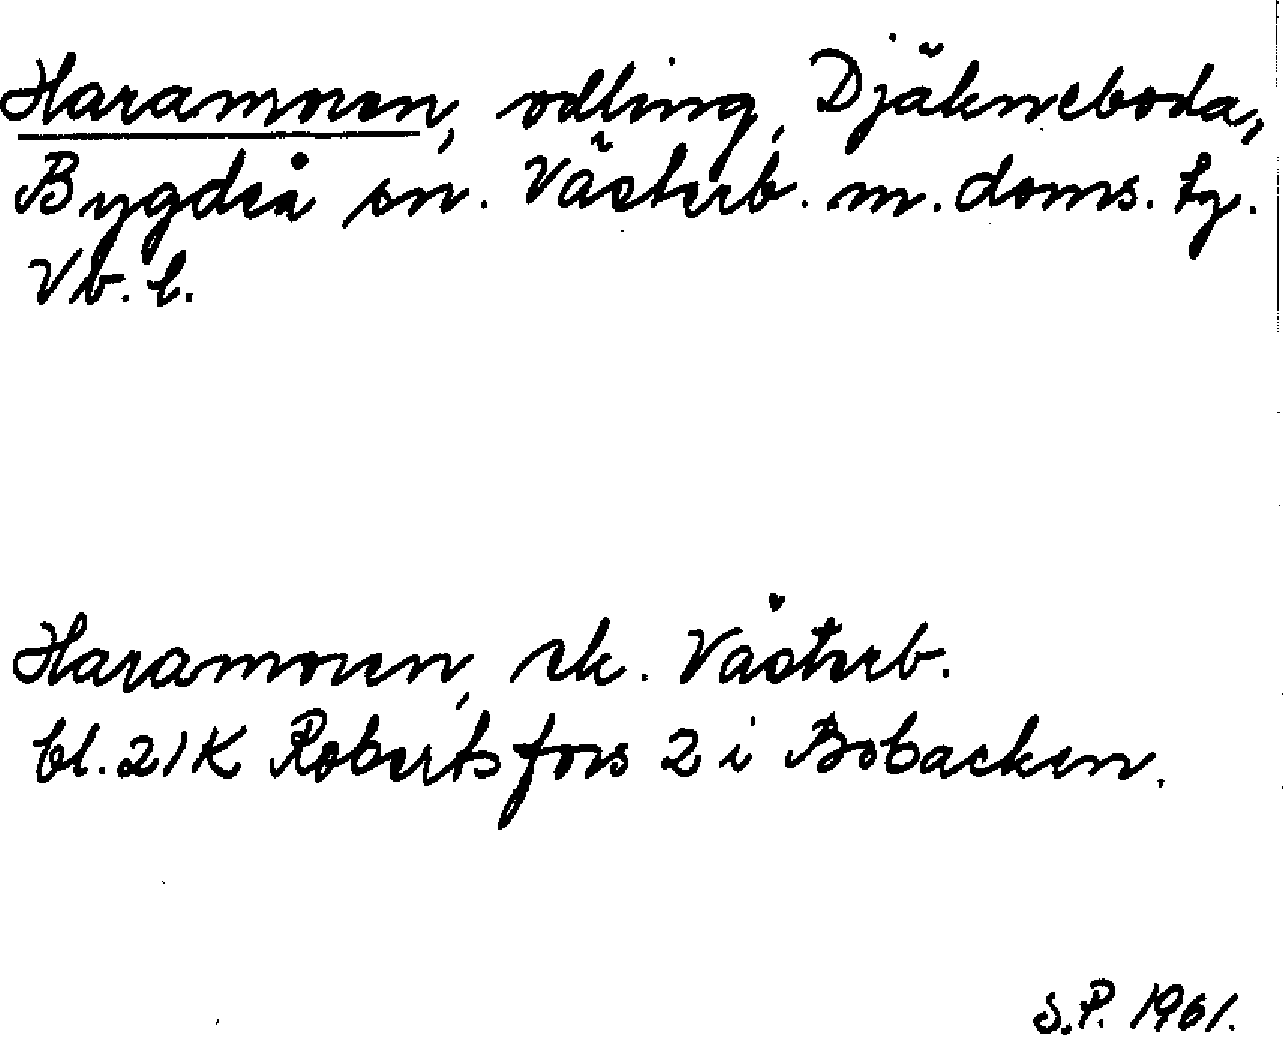 Haramoren, odling, Djäkneboda,
Bygdeå sn. Västerb. m. doms. tg.
Vb. l.
Haramoren, ek. Västerb.
bl. 21K Robertsfors 2 i Bobacken.
S.P. 1961.